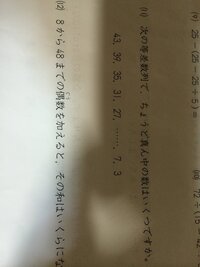 (9) 25－(25－25÷5)＝
(11) 次の等差数列で、ちょうど真ん中の数はいくつですか。
43, 39, 35, 31, 27, ……, 7, 3
(12) 8から48までの偶数を加えると、その和はいくらにな